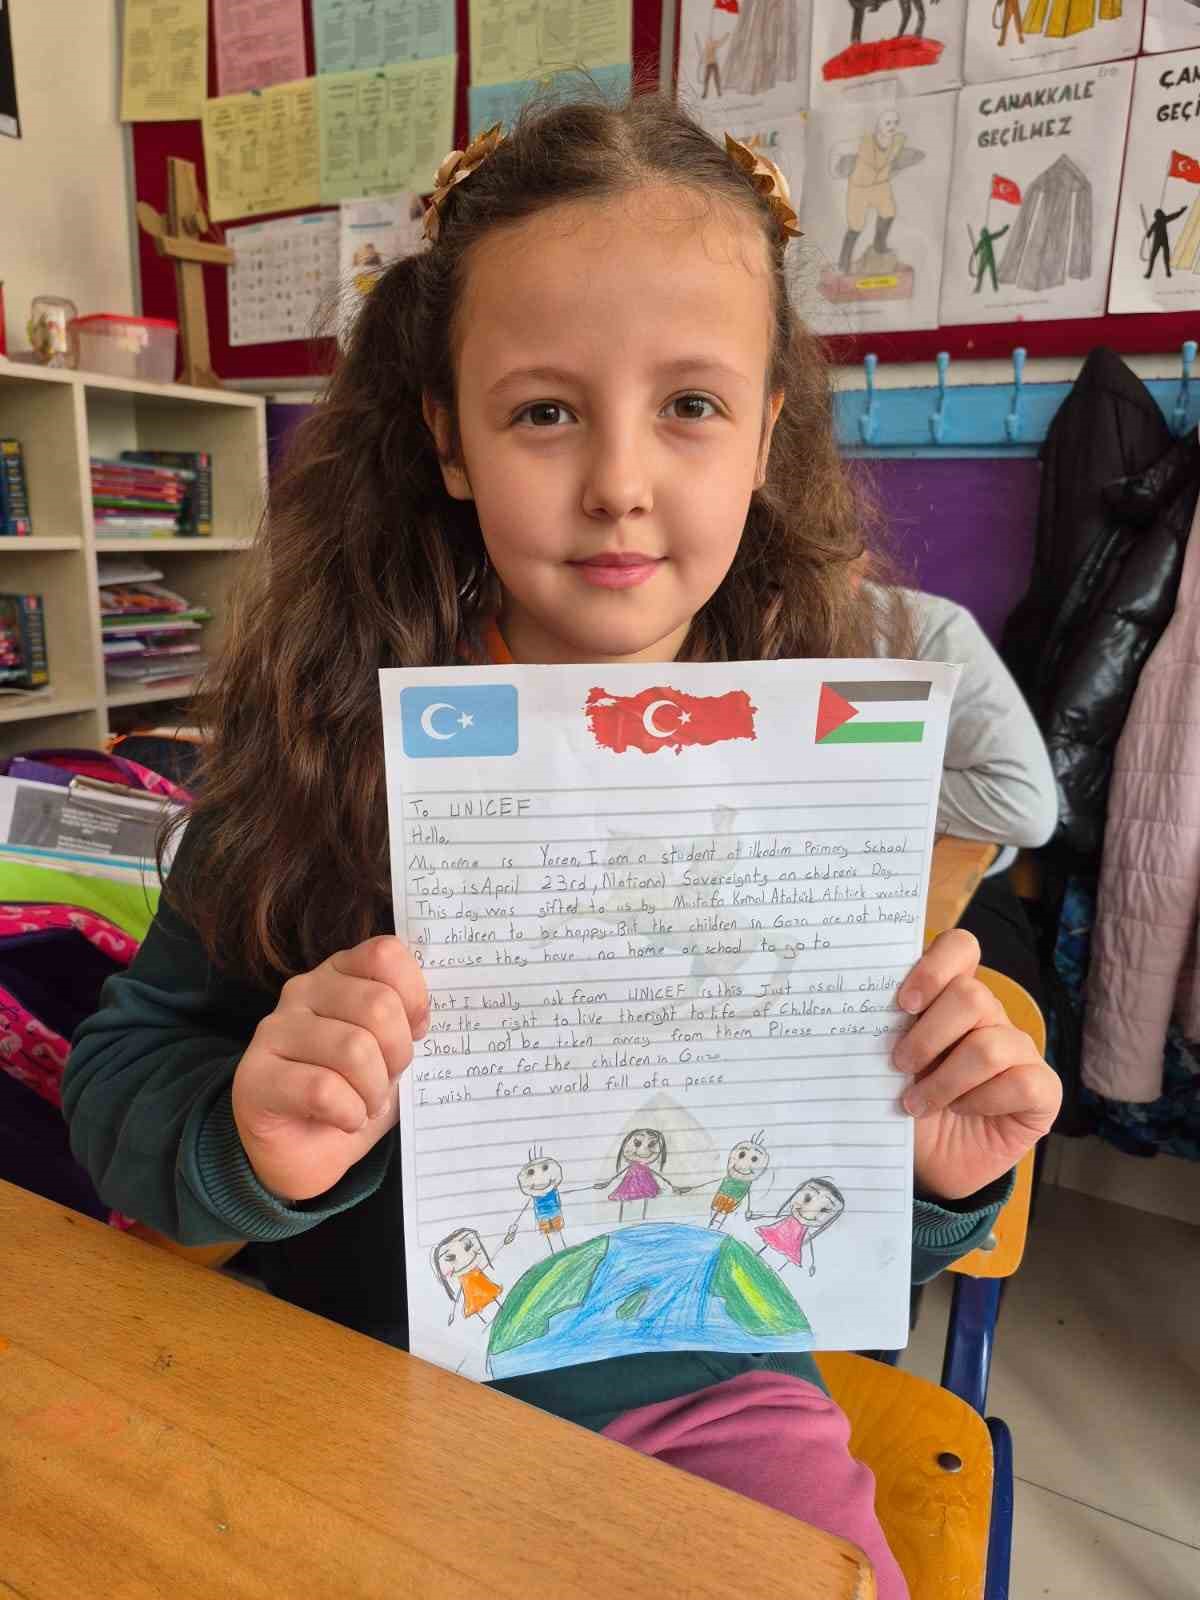 ÇANAKKALE
GEÇİLMEZ
To UNICEF
Hello,
My name is Yaren, I am a student at ilkadım Primary School
Today is April 23rd, National Sovereignty an chdren's Day
This day was gifted to us by Mustafa Kemal Atatürk Atatürk wanted
all children to be happy. But the children in Gaza are not happy.
Because they have no home or school to go to
What I kindly ask from UNICEF is this Just as all childre
have the right to live the right to life of Children in Gaza
Should not be taken away from them Please raise
veice more for the children in Gaza
I wish for a world full of a peace